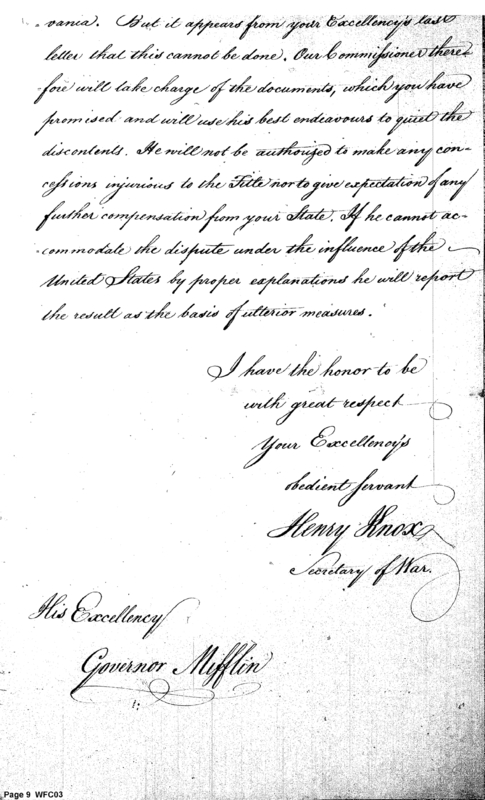 vania. But it appears from your Excellency's last
letter that this cannot be done. Our Commissioner there-
fore will take charge of the documents, which you have
promised and will use his best endeavours to quiet the
discontents. He will not be authorized to make any con-
cessions injurious to the Title nor to give expectation of any
further compensation from your State. If he cannot ac-
commodate the dispute under the influence of the
United States by proper explanations he will report
the result as the basis of ulterior measures.
I have the honor to be
with great respect
Your Excellency's
obedient servant
Henry Knox
Secretary of War.
His Excellency
Governor Mifflin
Page 9 WFC03